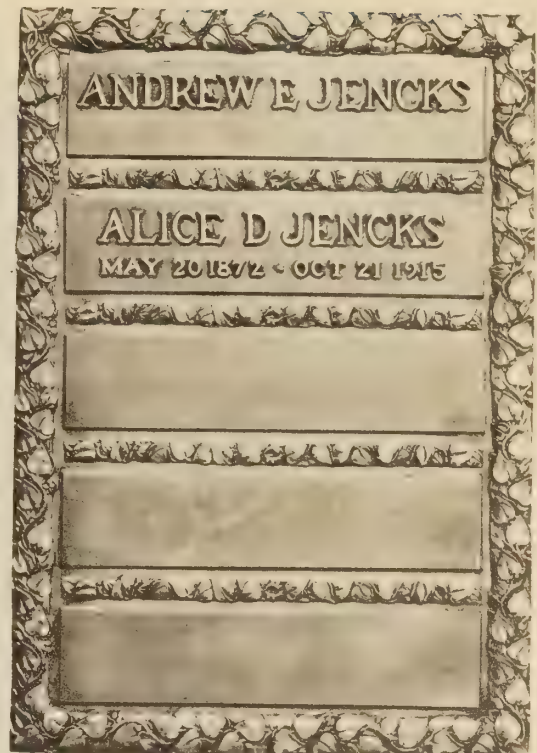 ANDREW E JENCKS
ALICE D JENCKS
MAY 20 1872 - OCT 21 1915